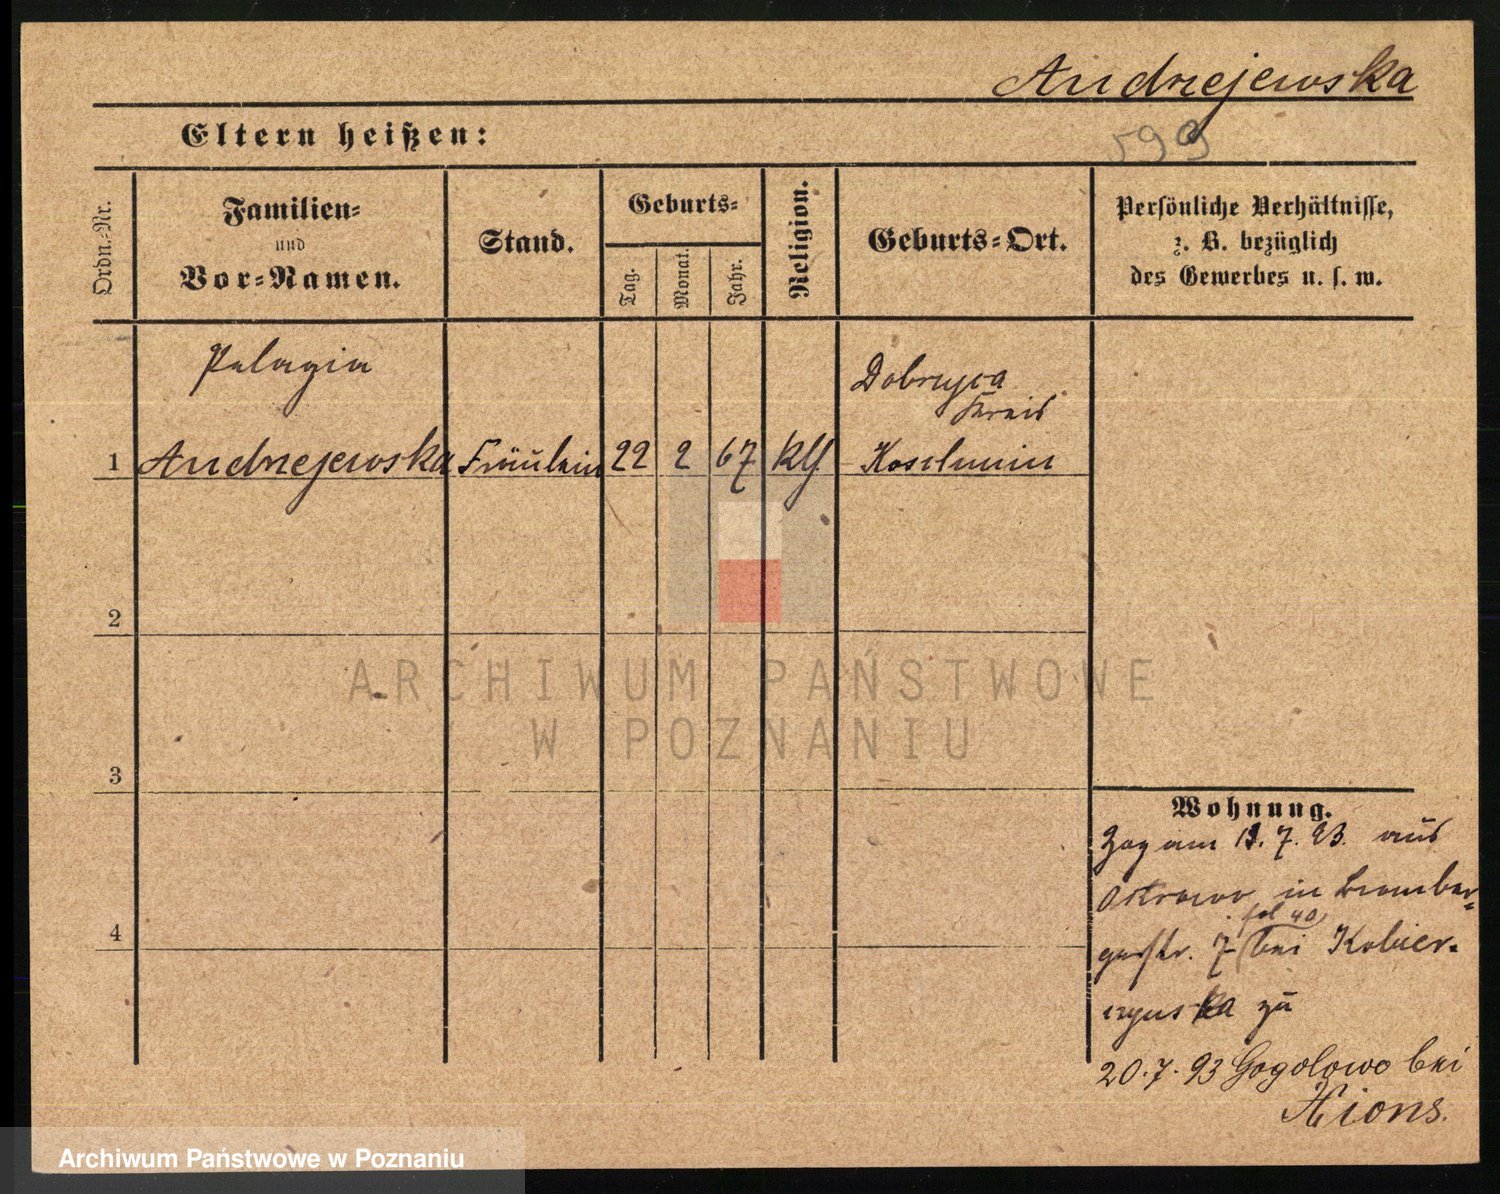 Andrzejewska
Eltern heißen:
599
Ordn.-Nr.
Familien-
und
Vor-Namen.
Stand.
Geburts-
Tag.
Monat.
Jahr.
Religion.
Geburts-Ort.
Persönliche Verhältnisse,
z. B. bezüglich
des Gewerbes u. s. w.
1
Pelagia
Andrzejewska
Fräulein
22
2
67
Dobrzyca
Kreis
Koschmin
2
3
4
Wohnung.
Zog am 7. 93. aus
Ostrowo in Bromber-
gerstr. 7 bei
zu
20. 7. 93 Gogolowo bei
Xions.
ARCHIWUM PAŃSTWOWE
W POZNANIU
Archiwum Państwowe w Poznaniu